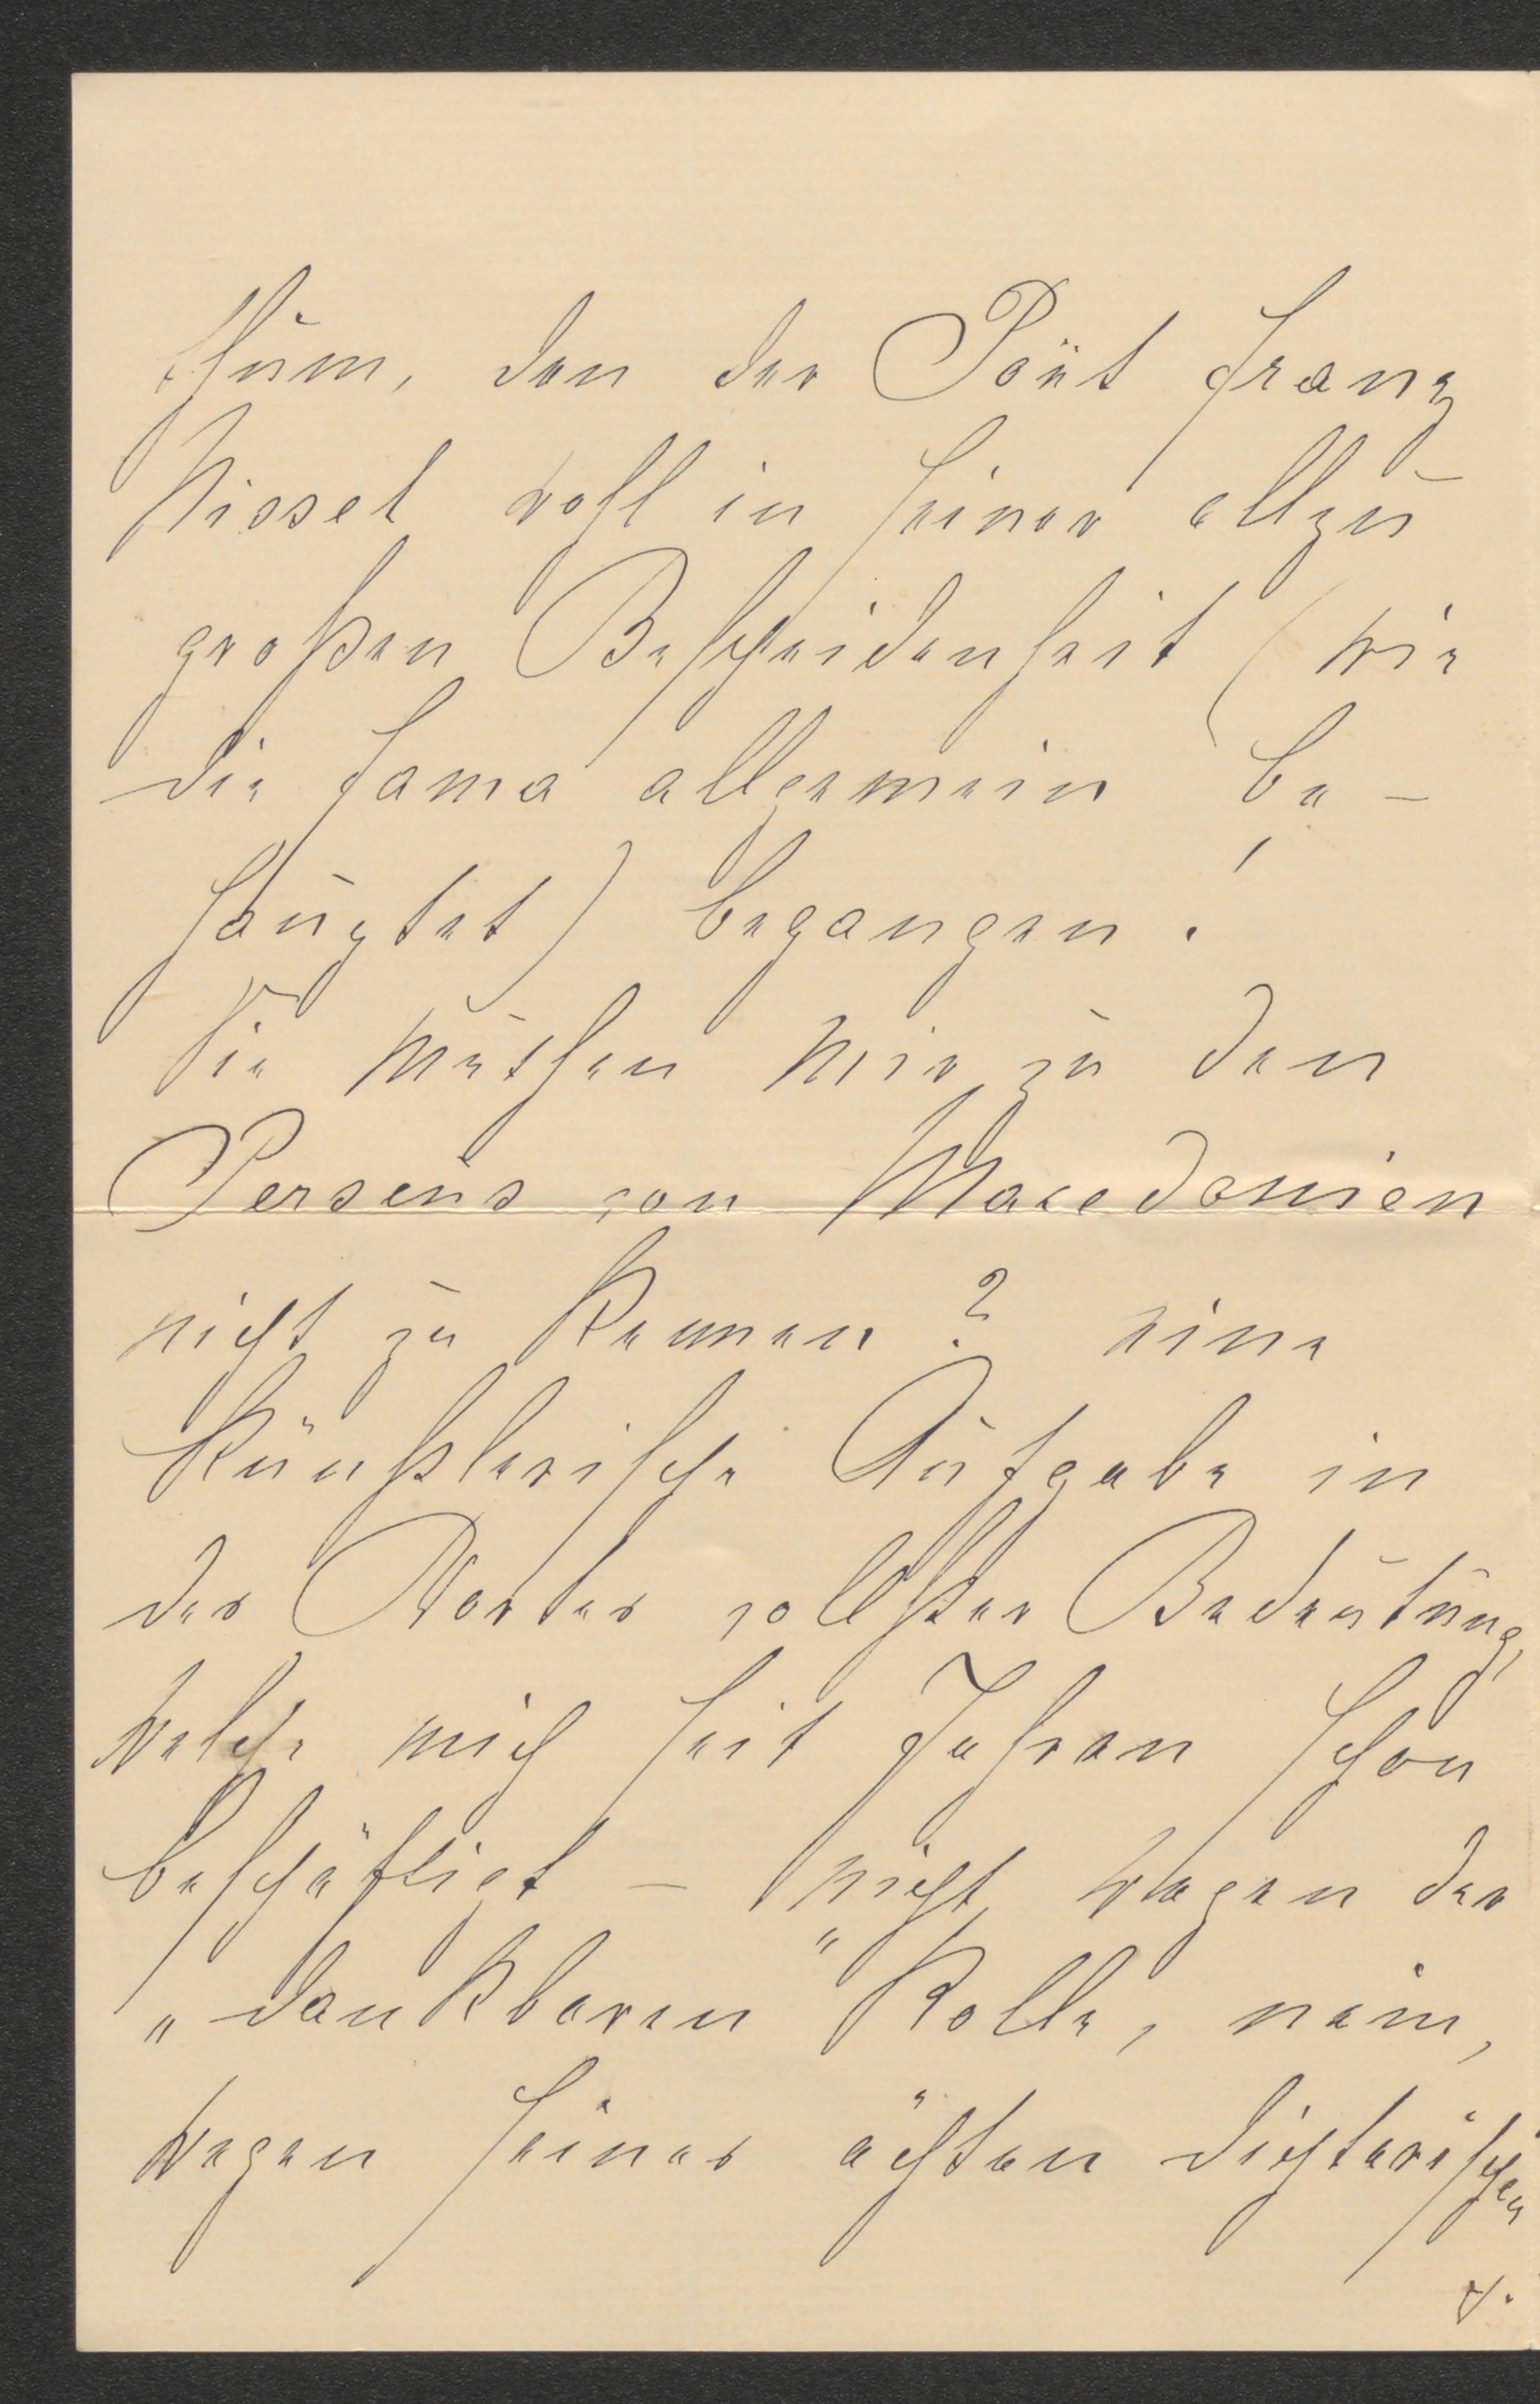 thum, den der Poët Franz
Nissel wohl in seiner allzu
großen Bescheidenheit (wie
die Fama allgemein be-
hauptet) begangen!
Sie muthen mir zu den
Perseus von Macedonien
nicht zu kennen? eine
künstlerische Aufgabe in
des Wortes vollster Bedeutung,
welche mich seit Jahren schon
beschäftigt – nicht wegen der
„dankbaren" Rolle, nein,
wegen seines ächten dichterischen